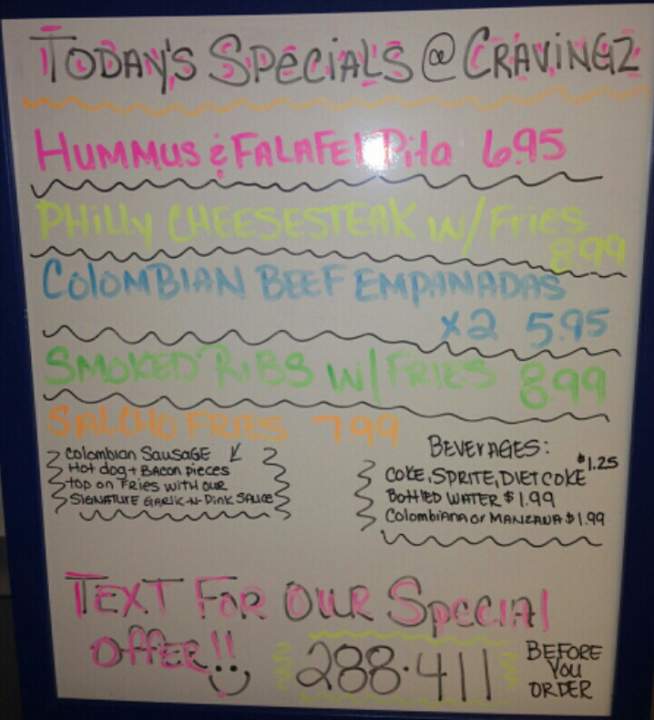 TODAY'S SPECIALS @ CRAVINGZ
HUMMUS & FALAFEL Pita 6.95
PHILLY CHEESESTEAK W/Fries
8.99
COLOMBIAN BEEF EMPANADAS
x2 5.95
SMOKED RIBS W/FRIES 8.99
SALCHO FRIES 7.99
Colombian SausaGE
Hot dog + BACON pieces
top on Fries with our
SIGNATURE GARLIC-N-PINK SAUCE
BEVERAGES:
$1.25
COKE, SPRITE, DIET COKE
BOTTLED WATER $1.99
Colombiana or MANZANA $1.99
TEXT FOR OUR SPECIAL
OFFER!!
288·411
BEFORE
YOU
ORDER